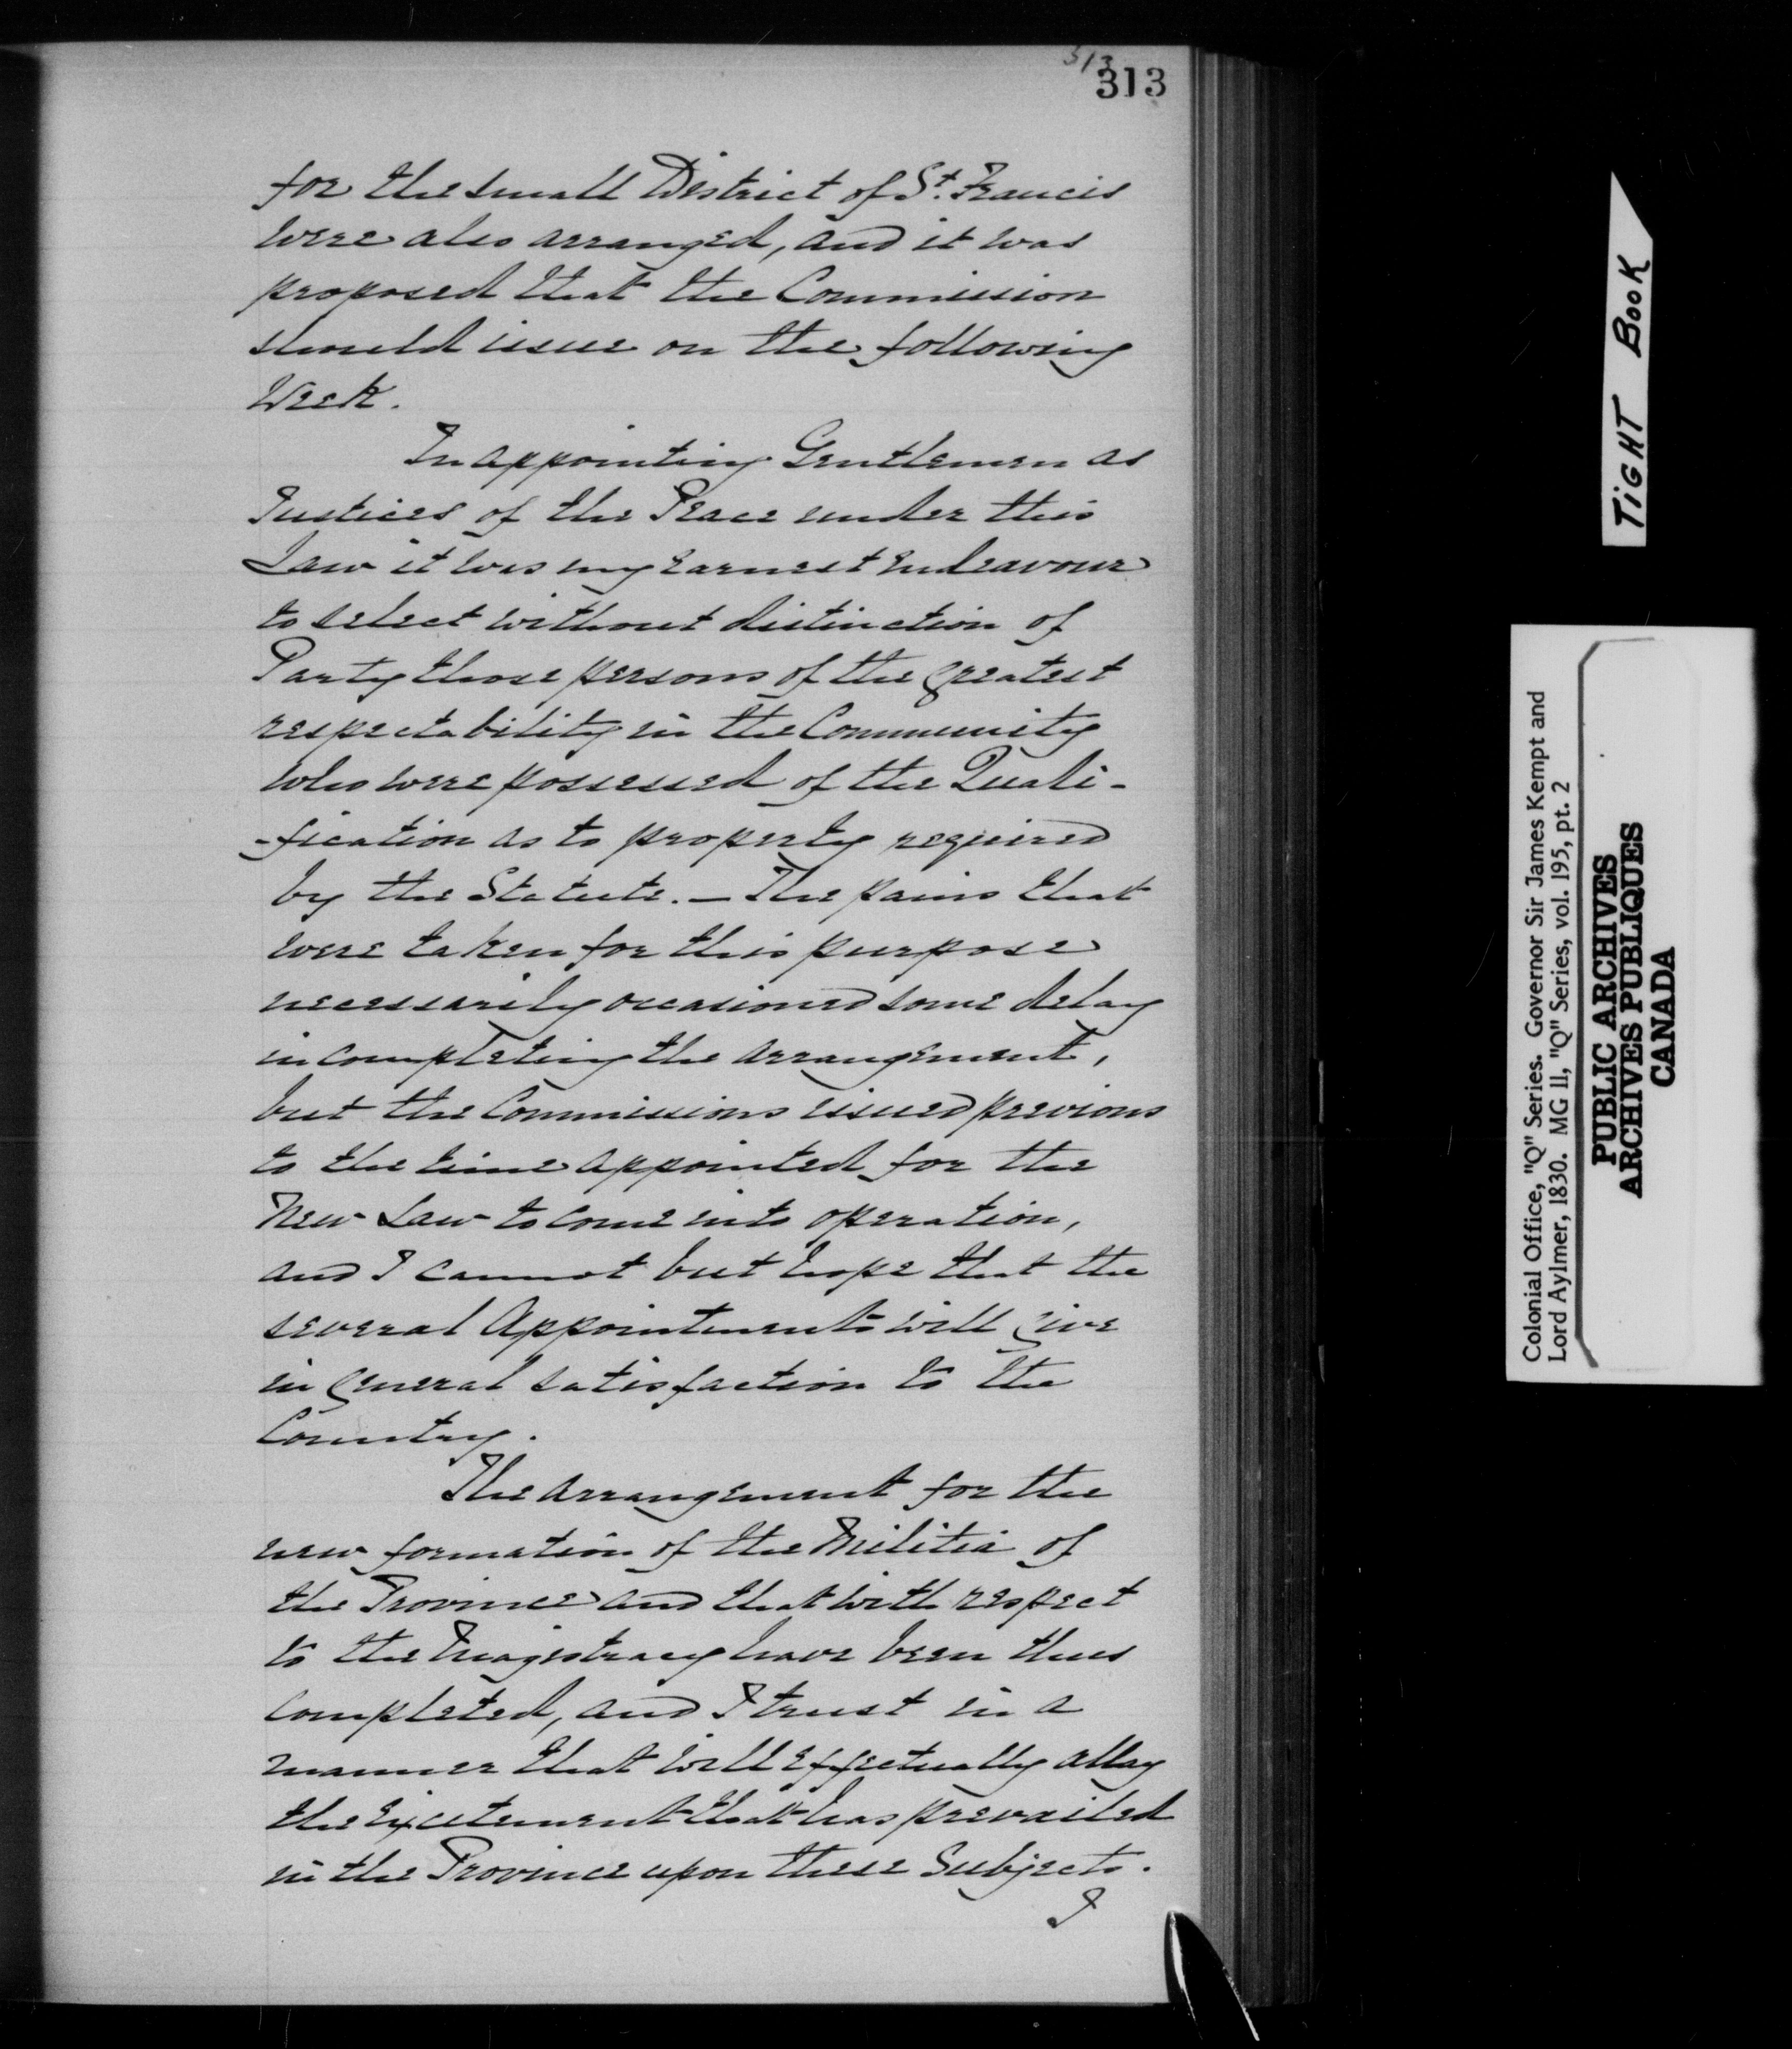 313
313
for the small District of St. Francis
were also arranged, and it was
proposed that the Commission
should issue on the following
Week.
In appointing Gentlemen as
Justices of the Peace under this
Law it was my earnest endeavour
to select without distinction of
Party those persons of the greatest
respectability in the Community
who were possessed of the Quali-
-fication as to property required
by the Statute. — The pains that
were taken for this purpose
necessarily occasioned some delay
in completing the arrangement,
but the Commissions issued previous
to the time appointed for the
New Law to come into operation,
and I cannot but hope that the
several Appointments will give
in general satisfaction to the
Country.
The arrangement for the
new formation of the Militia of
the Province and that with respect
to the Magistracy have been thus
completed, and I trust in a
manner that will effectually allay
the Excitement that has prevailed
in the Province upon these Subjects.
I
TIGHT BOOK
Colonial Office, "Q" Series. Governor Sir James Kempt and
Lord Aylmer, 1830. MG 11, "Q" Series, vol. 195, pt. 2
PUBLIC ARCHIVES
ARCHIVES PUBLIQUES
CANADA